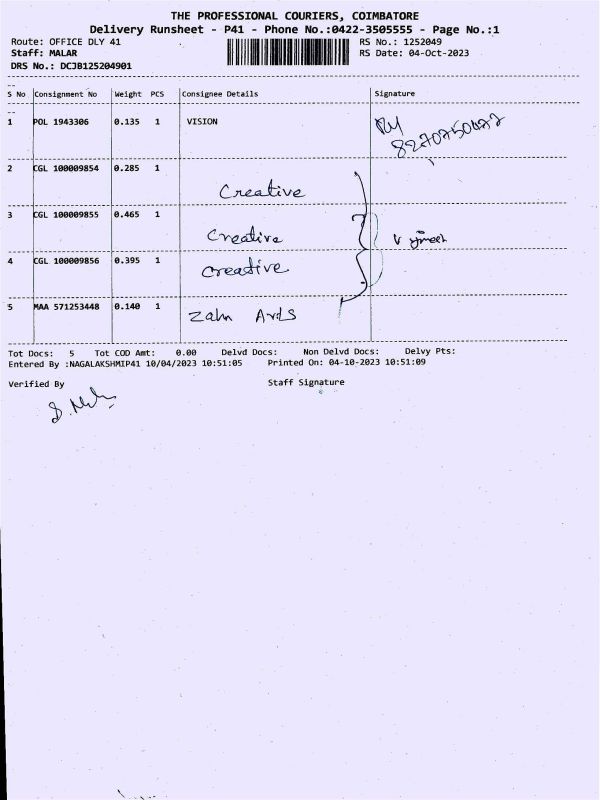 THE PROFESSIONAL COURIERS, COIMBATORE
Delivery Runsheet - P41 - Phone No.:0422-3505555 - Page No.:1
Route: OFFICE DLY 41 RS No.: 1252049
Staff: MALAR RS Date: 04-Oct-2023
DRS No.: DCJB125204901
S No Consignment No Weight PCS Consignee Details Signature
1 POL 1943306 0.135 1 VISION
2 CGL 100009854 0.285 1
Creative
3 CGL 100009855 0.465 1
Creative
4 CGL 100009856 0.395 1
Creative
5 MAA 571253448 0.140 1
Tot Docs: 5 Tot COD Amt: 0.00 Delvd Docs: Non Delvd Docs: Delvy Pts:
Entered By :NAGALAKSHMIP41 10/04/2023 10:51:05 Printed On: 04-10-2023 10:51:09
Verified By Staff Signature